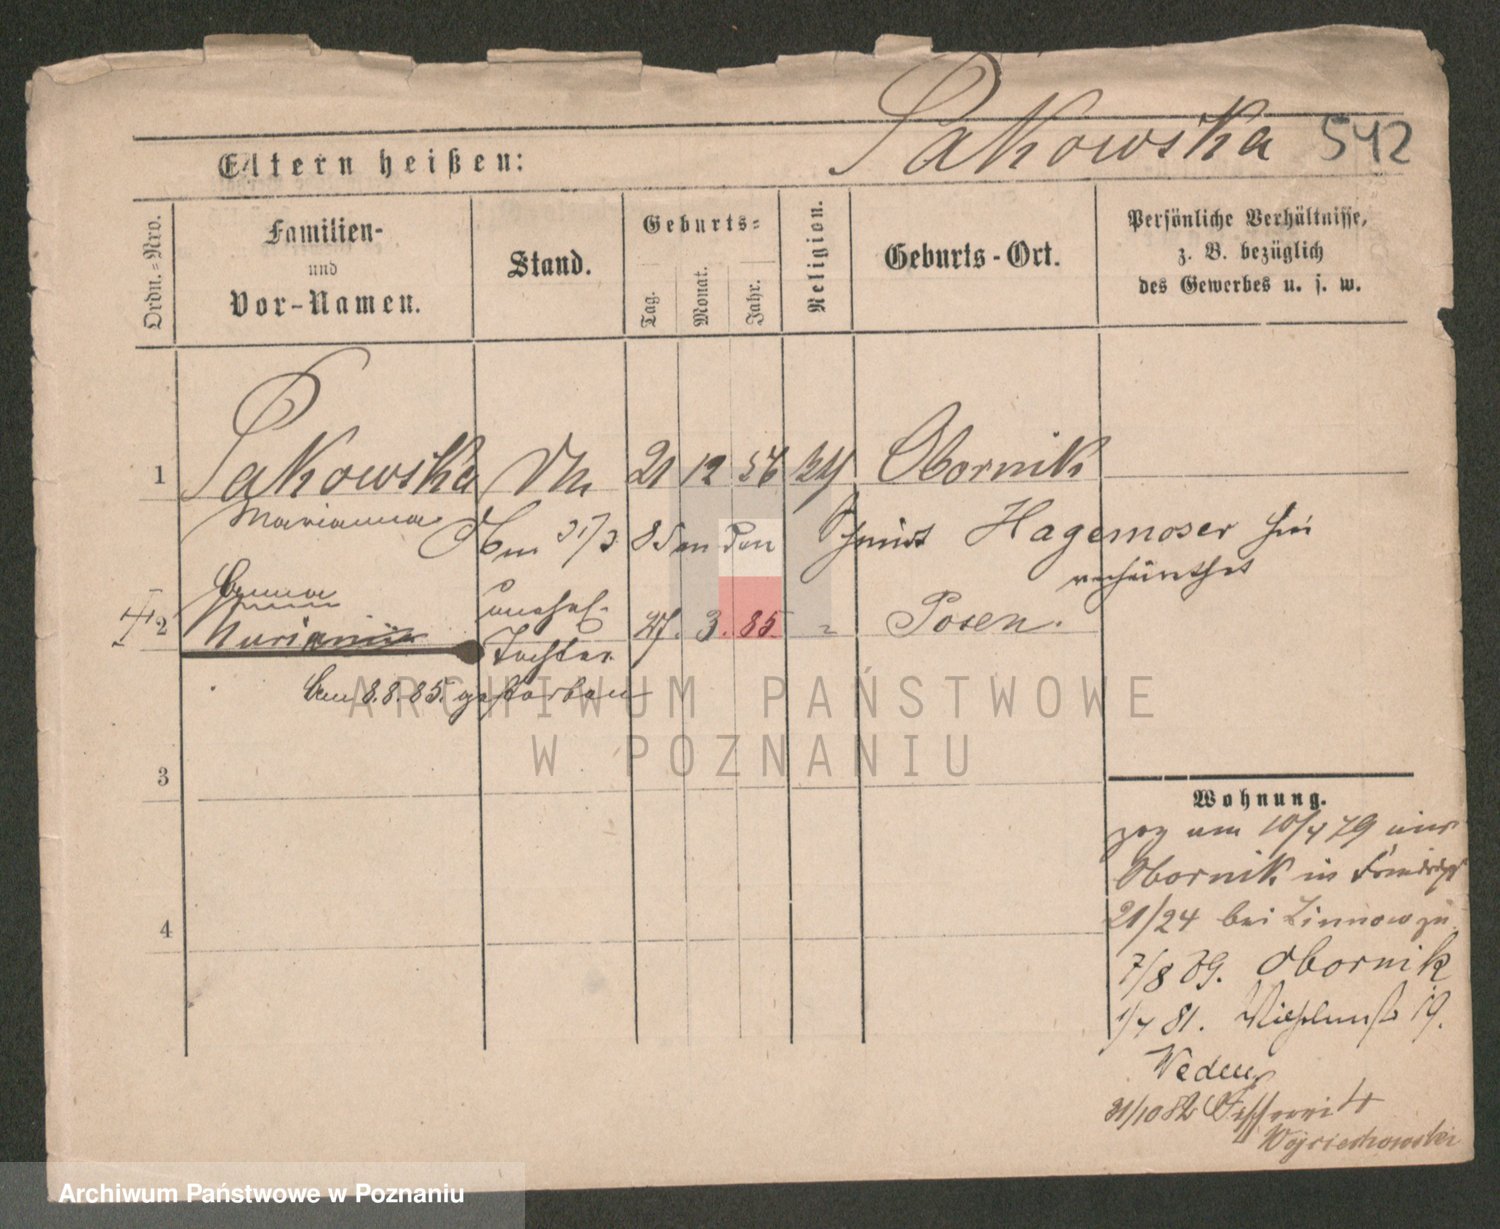 Pakowska 542
Eltern heißen:
Ordn.=Nro.
Familien-
und
Vor-Namen.
Stand.
Geburts=
Tag.
Monat.
Jahr.
Religion.
Geburts-Ort.
Persönliche Verhältnisse,
z. B. bezüglich
des Gewerbes u. s. w.
1 Pakowska 21 12 56 Obornik
Marianna
Am 31/3 85 an den Schmidt Hagemoser hier
verheirathet
2 Anna unehel. 27. 3. 85. " Posen.
Tochter
Am 8.8.85. gestorben
3
4
Wohnung.
zog am 10/4 79 aus
Obornik in
21/24 bei
7/8 79. Obornik
1/4 81. 19.
31/10 82
Wojciechowski
ARCHIWUM PAŃSTWOWE
W POZNANIU
Archiwum Państwowe w Poznaniu